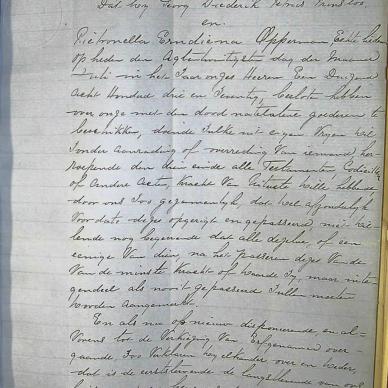 Dat hoy Georg Diederik
en
Pietronella Erndiena Opperman Echte lieden
op heden den Agtentwintigsten dag der Maand
Juli in het Jaar onzes Heeren Een Duizend
Acht Honderd drie en Zeventig, besloten hebben
over onze met den dood natelatene goederen te
beschikken, doende zulks uit eigen Vrijen wil
zonder aanrading of overreding Van iemand, her
roepende ten dien einde alle Testamenten Codicille
of andere Acten, kracht Van Uiterste Wille hebbende
door ons Zoo gezamentlijk, dat wel afzonderlijk
Voor date dezes opgerigt en gepasseerd, niet wil
lende nog begeerende dat alle dezelve, of een
eenige Van dien, na het passeren dezes Van de
Van de minste kracht of waarde Zy, maar inte
gendeel als nooit gepasseerd Zullen moeten
worden aangemerkt.
En als nu op nieuw disponerende en al-
Vorens tot de Verkiezing Van Erfgenamen over
gaande, Zoo Verklaren hey elkander over en weder,
dat is de eerststervende de langstlevende van ons